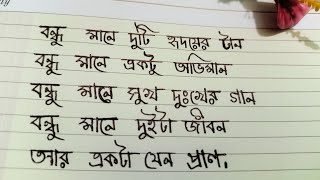 বন্ধু মানে দুটি হৃদয়ের টান
বন্ধু মানে একটু অভিমান
বন্ধু মানে সুখ দুঃখের গান
বন্ধু মানে দুইটা জীবন
তার একটা যেন প্রাণ.